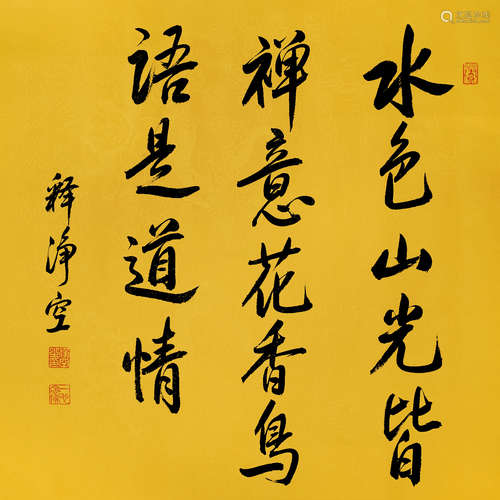 水色山光皆
禅意花香鳥
語是道情
释净空